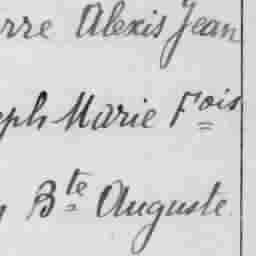 rre Alexis Jean
eph Marie Fois
Bte Auguste